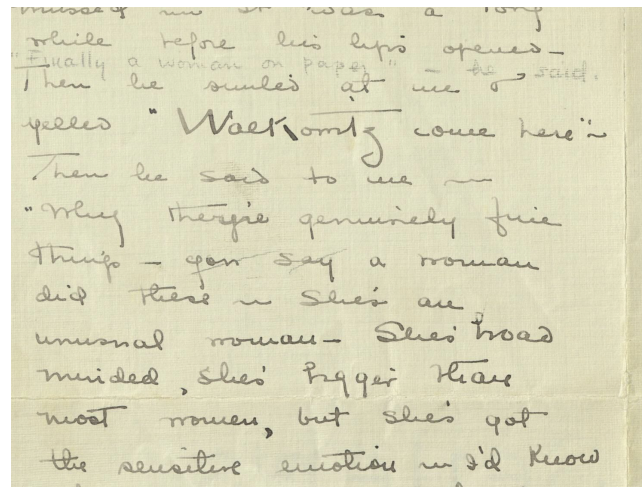 it was a long
while before his lips opened—
"Finally a woman on paper" — he said.
Then he smiled at me &
yelled "Walkowitz come here"~
Then he said to me —
"Why they're genuinely fine
things — you say a woman
did these ~ She's an
unusual woman — She's broad
minded, She's bigger than
most women, but she's got
the sensitive emotion ~ I'd know